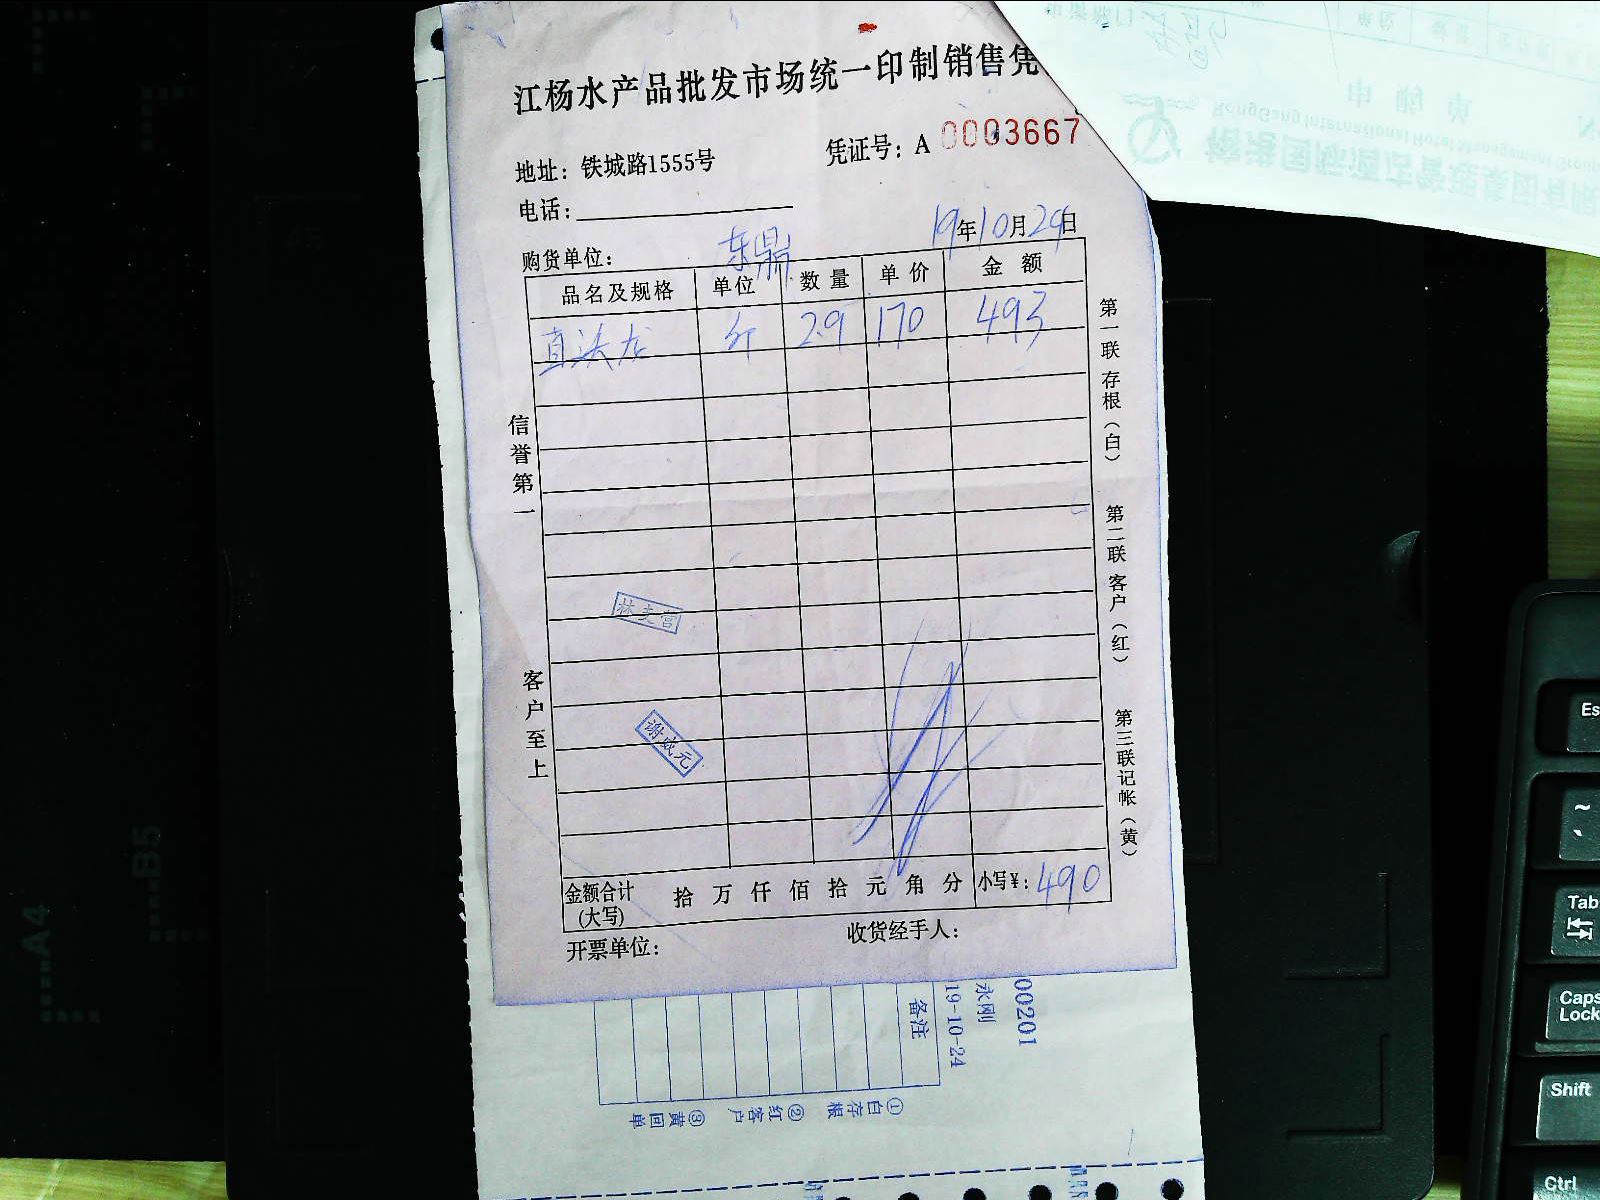 江杨水产品批发市场统一印制销售凭
地址：铁城路1555号
凭证号：A 0003667
电话：
19年10月24日
购货单位：东鼎
品名及规格 单位 数量 单价 金额
直头龙 斤 2.9 170 493
信誉第一
客户至上
第一联存根（白）
第二联客户（红）
第三联记帐（黄）
谢成元
金额合计(大写) 拾 万 仟 佰 拾 元 角 分 小写¥：490
开票单位：
收货经手人：
00201
永刚
19-10-24
备注
①白存根 ②红客户 ③黄回单
RongGang International Hotel Management Group
A4
B5
Es
~
Tab
Caps Lock
Shift
Ctrl